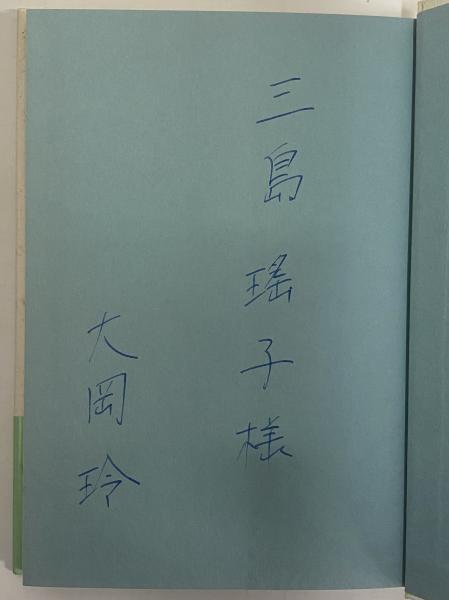 三島瑤子様
大岡玲